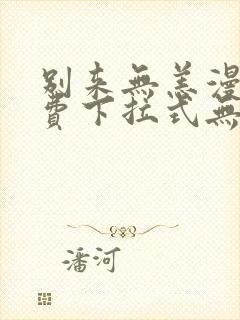 别来無恙漫
費下拉式無
潘河